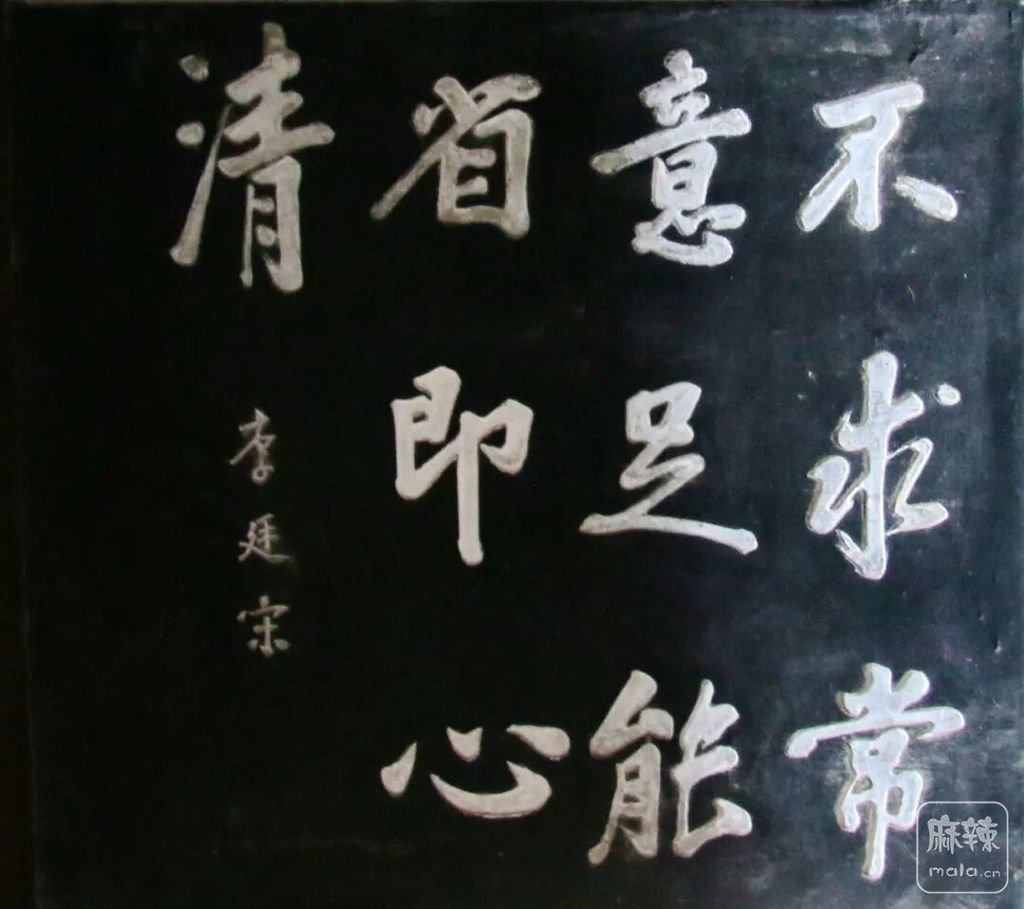 不求常
意足能
省即心
清
李廷宋
麻辣
mala.cn